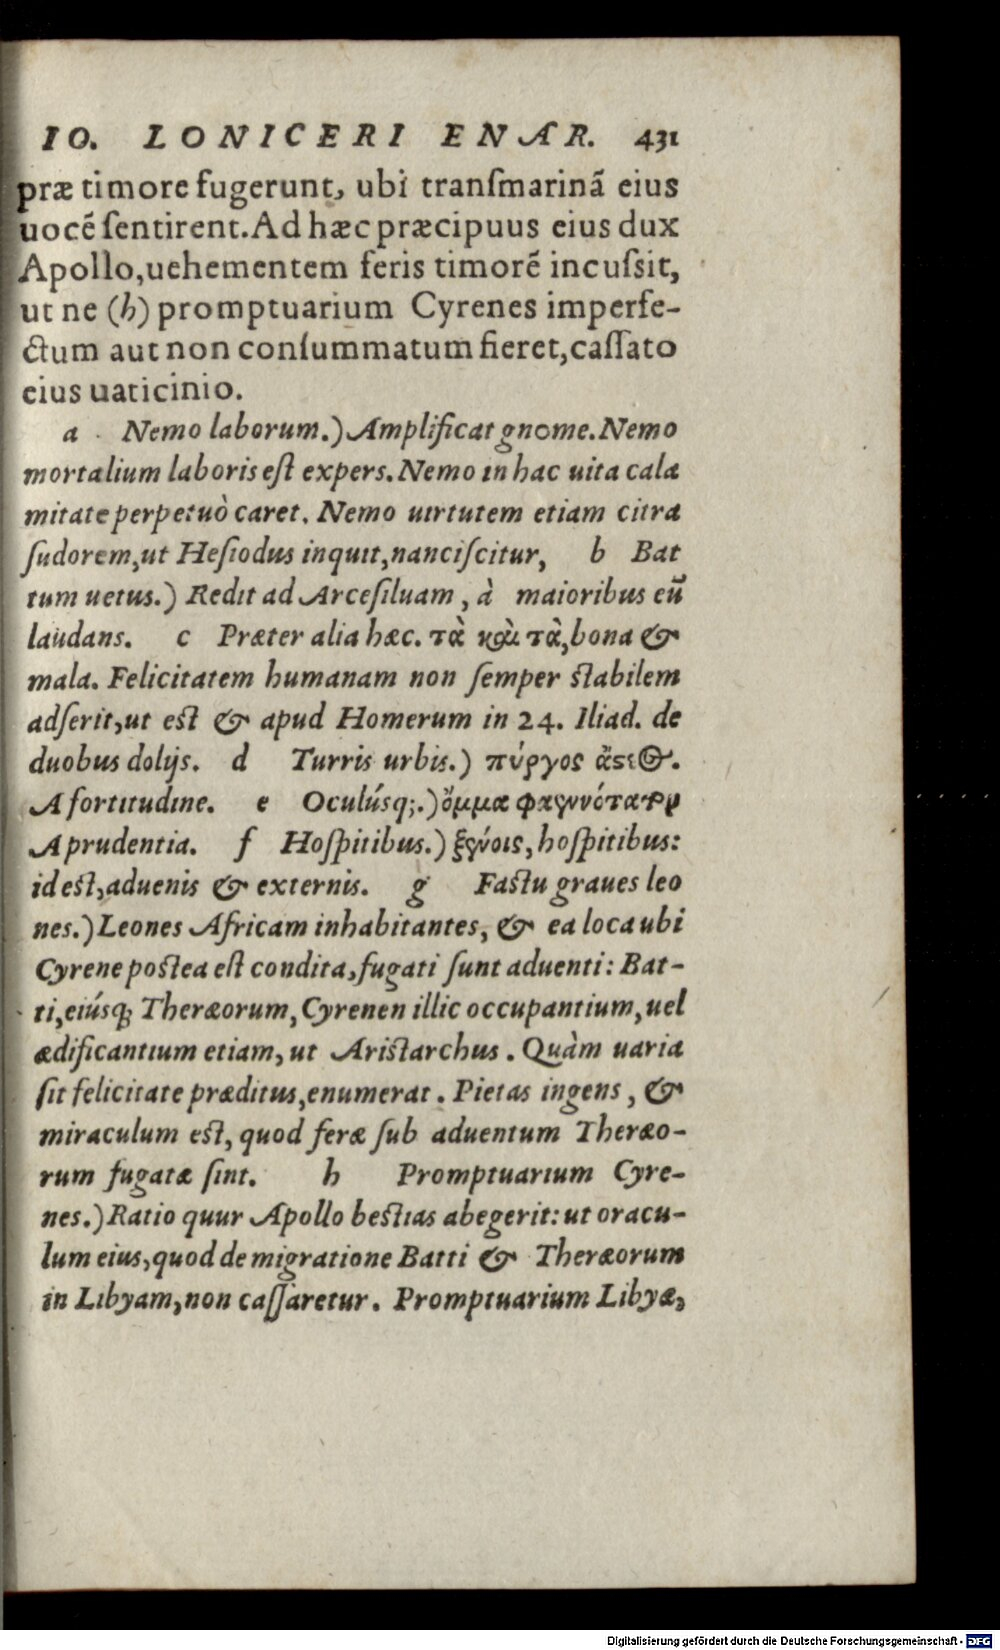 IO. LONICERI ENAR. 431
præ timore fugerunt, ubi tranſmarinã eius
uocẽ ſentirent. Ad hæc præcipuus eius dux
Apollo, uehementem feris timorẽ incuſsit,
ut ne (h) promptuarium Cyrenes imperfe-
ctum aut non conſummatum fieret, caſſato
eius uaticinio.
a Nemo laborum.) Amplificat gnome. Nemo
mortalium laboris eſt expers. Nemo in hac uita cala
mitate perpetuò caret. Nemo uirtutem etiam citra
ſudorem, ut Heſiodus inquit, nanciſcitur, b Bat
tum uetus.) Redit ad Arceſiluam, à maioribus eũ
laudans. c Præter alia hæc. τὰ καὶ τὰ, bona &
mala. Felicitatem humanam non ſemper ſtabilem
adſerit, ut eſt & apud Homerum in 24. Iliad. de
duobus dolijs. d Turris urbis.) πύργος ἄστεος.
A fortitudine. e Oculúsq;.) ὄμμα φαεννότατον
A prudentia. f Hoſpitibus.) ξένοις, hoſpitibus:
id eſt, aduenis & externis. g Faſtu graues leo
nes.) Leones Africam inhabitantes, & ea loca ubi
Cyrene poſtea eſt condita, fugati ſunt aduenti: Bat-
ti, eiúsq; Theræorum, Cyrenen illic occupantium, uel
ædificantium etiam, ut Ariſtarchus. Quàm uaria
ſit felicitate præditus, enumerat. Pietas ingens, &
miraculum eſt, quod feræ ſub aduentum Theræo-
rum fugatæ ſint. h Promptuarium Cyre-
nes.) Ratio quur Apollo beſtias abegerit: ut oracu-
lum eius, quod de migratione Batti & Theræorum
in Libyam, non caſſaretur. Promptuarium Libyæ,
Digitalisierung gefördert durch die Deutsche Forschungsgemeinschaft - DFG